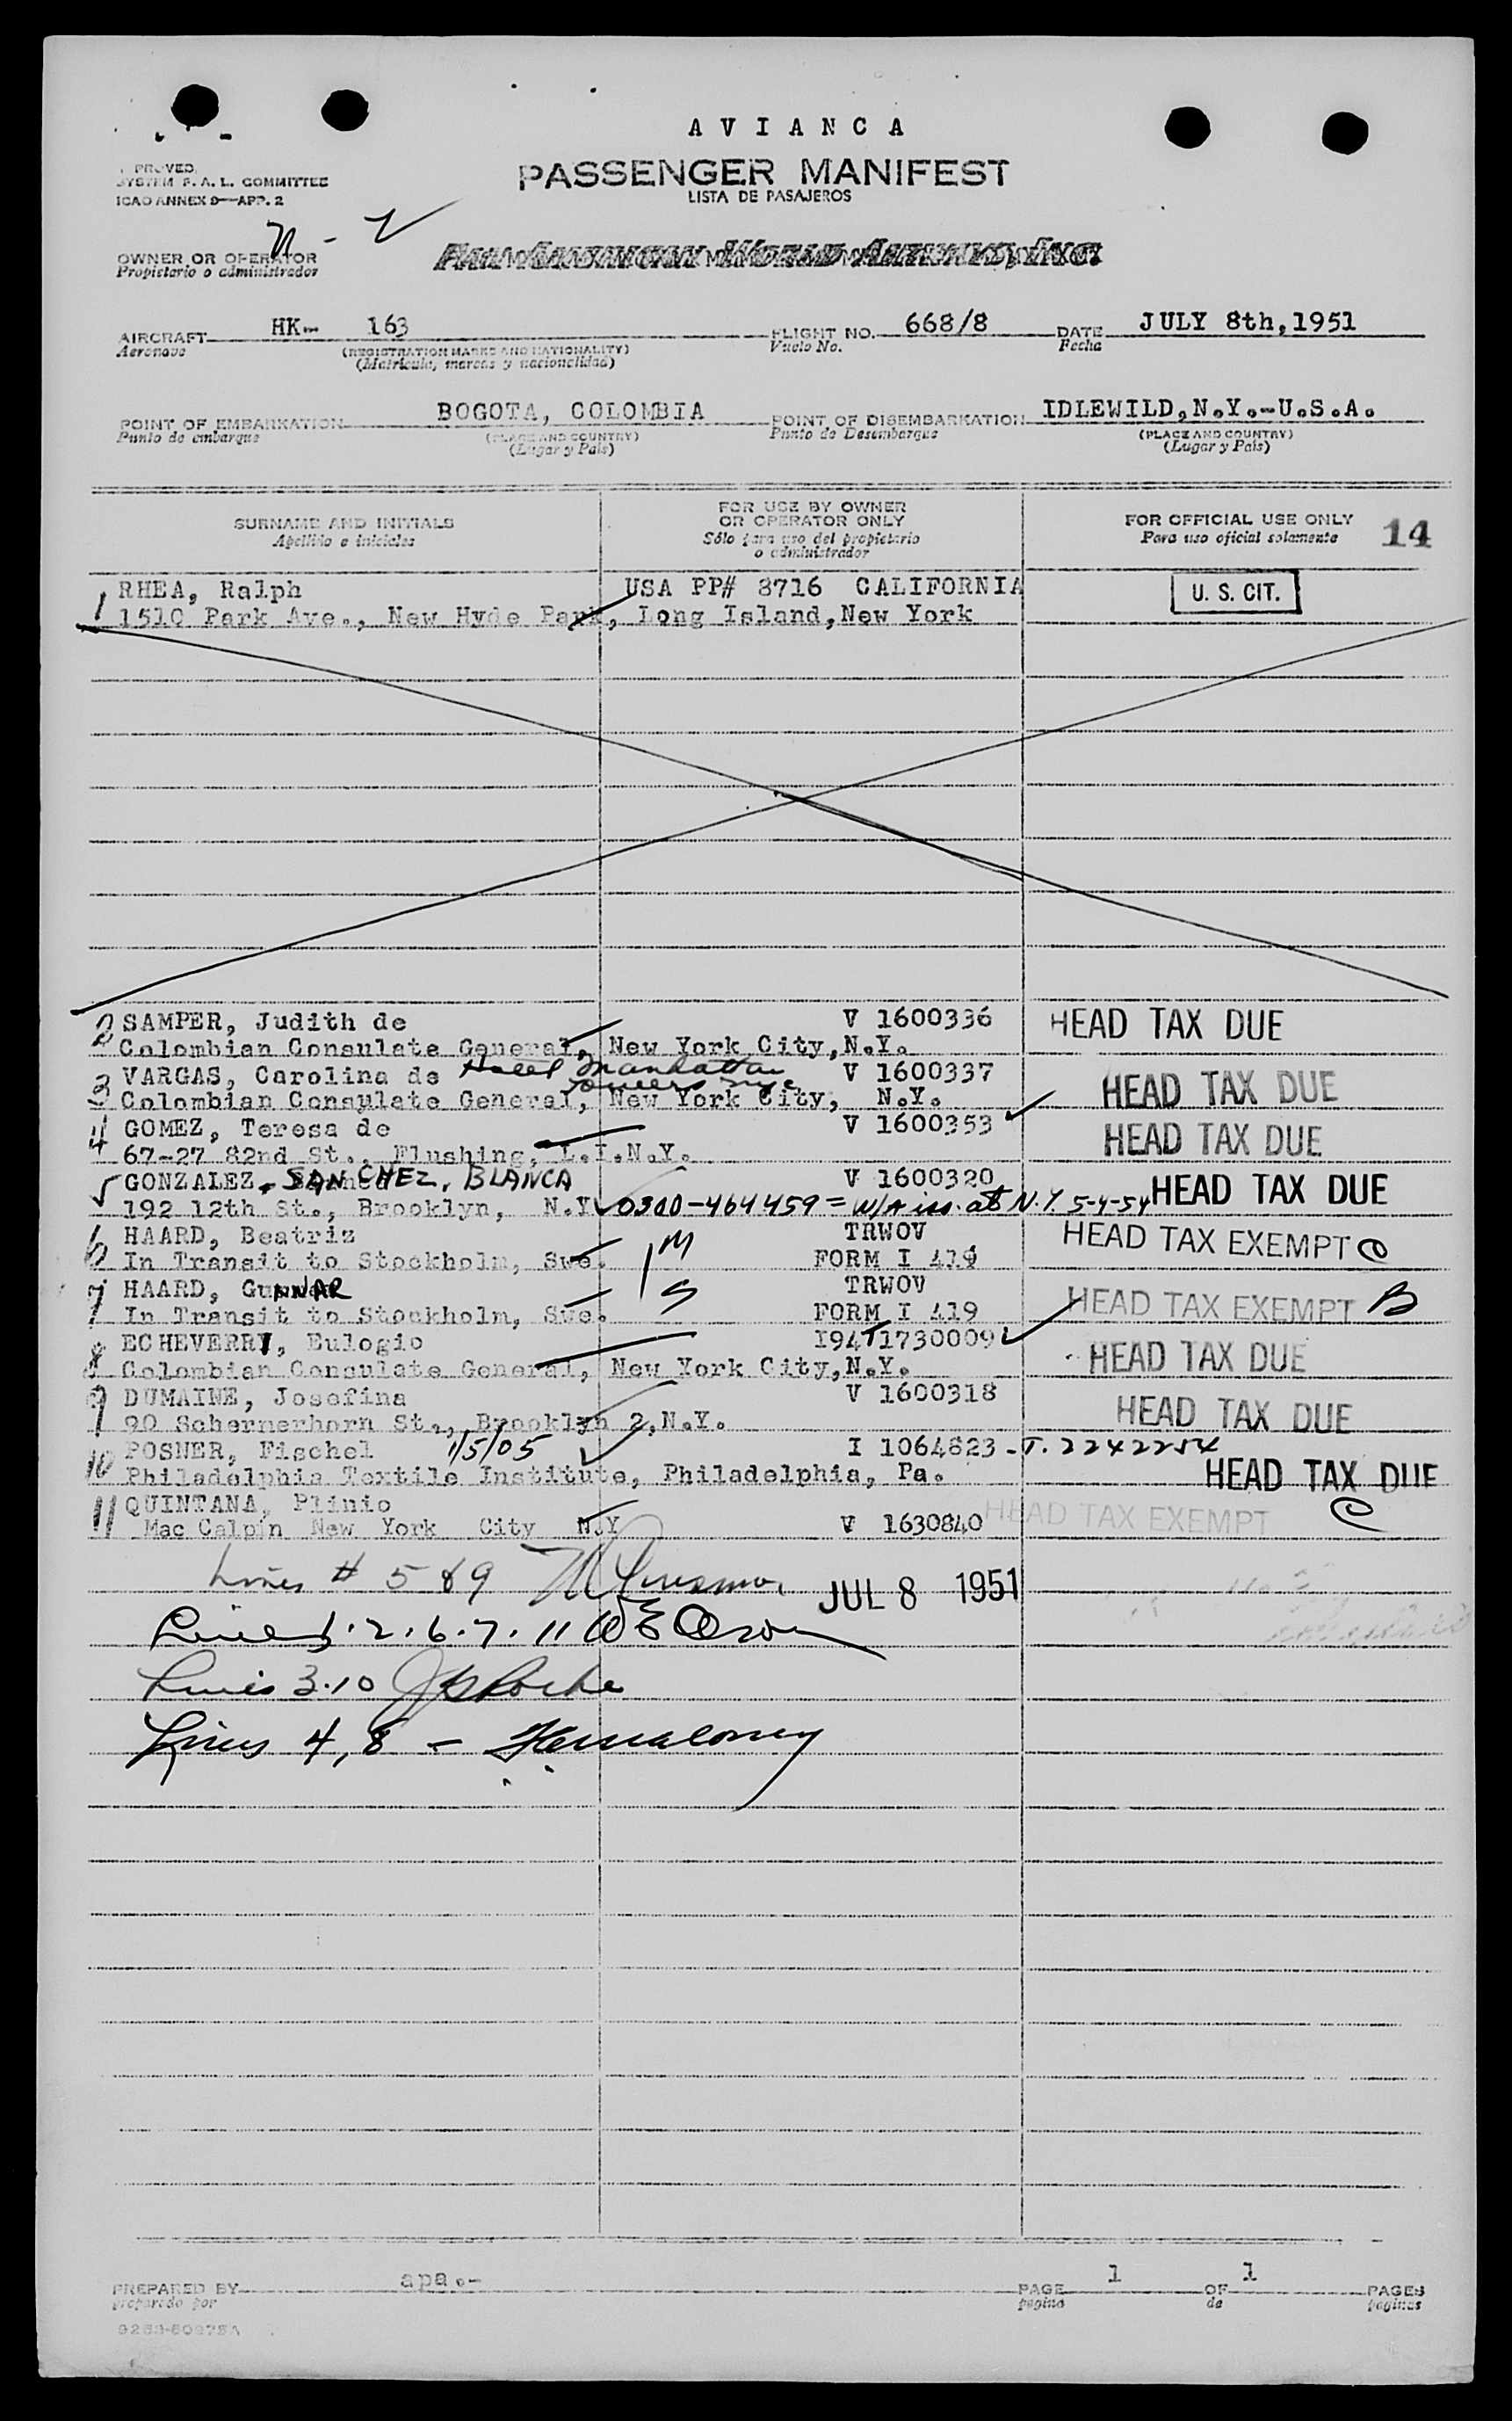 AVIANCA
PASSENGER MANIFEST
LISTA DE PASAJEROS
SYSTEM F. A. L. COMMITTEE
ICAO ANNEX 9—APP. 2
OWNER OR OPERATOR
Propietario o administrador
PAN AMERICAN WORLD AIRWAYS, INC.
AIRCRAFT HK-- 163 FLIGHT NO. 668/8 DATE JULY 8th, 1951
Aeronave (REGISTRATION MARKS AND NATIONALITY) Vuelo No. Fecha
(Matrícula, marcas y nacionalidad)
POINT OF EMBARKATION BOGOTA, COLOMBIA POINT OF DISEMBARKATION IDLEWILD,N.Y.-U.S.A.
Punto de embarque (PLACE AND COUNTRY) Punto de Desembarque (PLACE AND COUNTRY)
(Lugar y País) (Lugar y País)
SURNAME AND INITIALS FOR USE BY OWNER OR OPERATOR ONLY FOR OFFICIAL USE ONLY 14
Apellido e iniciales Sólo para uso del propietario o administrador Para uso oficial solamente
1 RHEA, Ralph USA PP# 8716 CALIFORNIA U. S. CIT.
1510 Park Ave., New Hyde Park, Long Island,New York
2 SAMPER, Judith de V 1600336 HEAD TAX DUE
Colombian Consulate General, New York City,N.Y.
3 VARGAS, Carolina de Hotel Manhattan Towers nyc V 1600337 HEAD TAX DUE
Colombian Consulate General, New York City, N.Y.
4 GOMEZ, Teresa de V 1600353 HEAD TAX DUE
67-27 82nd St., Flushing, L.I.N.Y.
GONZALEZ, SANCHEZ, BLANCA V 1600320
192 12th St., Brooklyn, N.Y. 0300-464459 = W/A iss. at N.Y. 5-4-54 HEAD TAX DUE
6 HAARD, Beatriz TRWOV HEAD TAX EXEMPT C
In Transit to Stockholm, Swe. 1 M FORM I 419
7 HAARD, GUNNAR TRWOV HEAD TAX EXEMPT B
In Transit to Stockholm, Swe. 1 S FORM I 419
8 ECHEVERRY, Eulogio I94T1730009 HEAD TAX DUE
Colombian Consulate General, New York City,N.Y.
9 DUMAINE, Josefina V 1600318 HEAD TAX DUE
90 Schermerhorn St., Brooklyn 2,N.Y.
10 POSNER, Fischel 1/5/05 I 1064823 - T. 2242254
Philadelphia Textile Institute, Philadelphia, Pa. HEAD TAX DUE
11 QUINTANA, Plinio HEAD TAX EXEMPT C
Mac Calpin New York City N.Y V 1630840
Lines # 5 & 9 JUL 8 1951
Lines 1.2.6.7.11
Lines 3.10
Lines 4,8 -
PREPARED BY apa.- PAGE 1 OF 1 PAGES
preparado por pagina de paginas